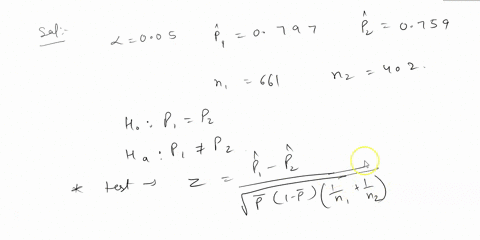 Sol:- α=0.05 P̂₁ = 0.797 P̂₂ = 0.759
n₁ = 661 n₂ = 402.
H₀: P₁ = P₂
Hₐ: P₁ ≠ P₂
* test → Z = (P̂₁ - P̂₂) / √(P̄ (1-P̄) (1/n₁ + 1/n₂))